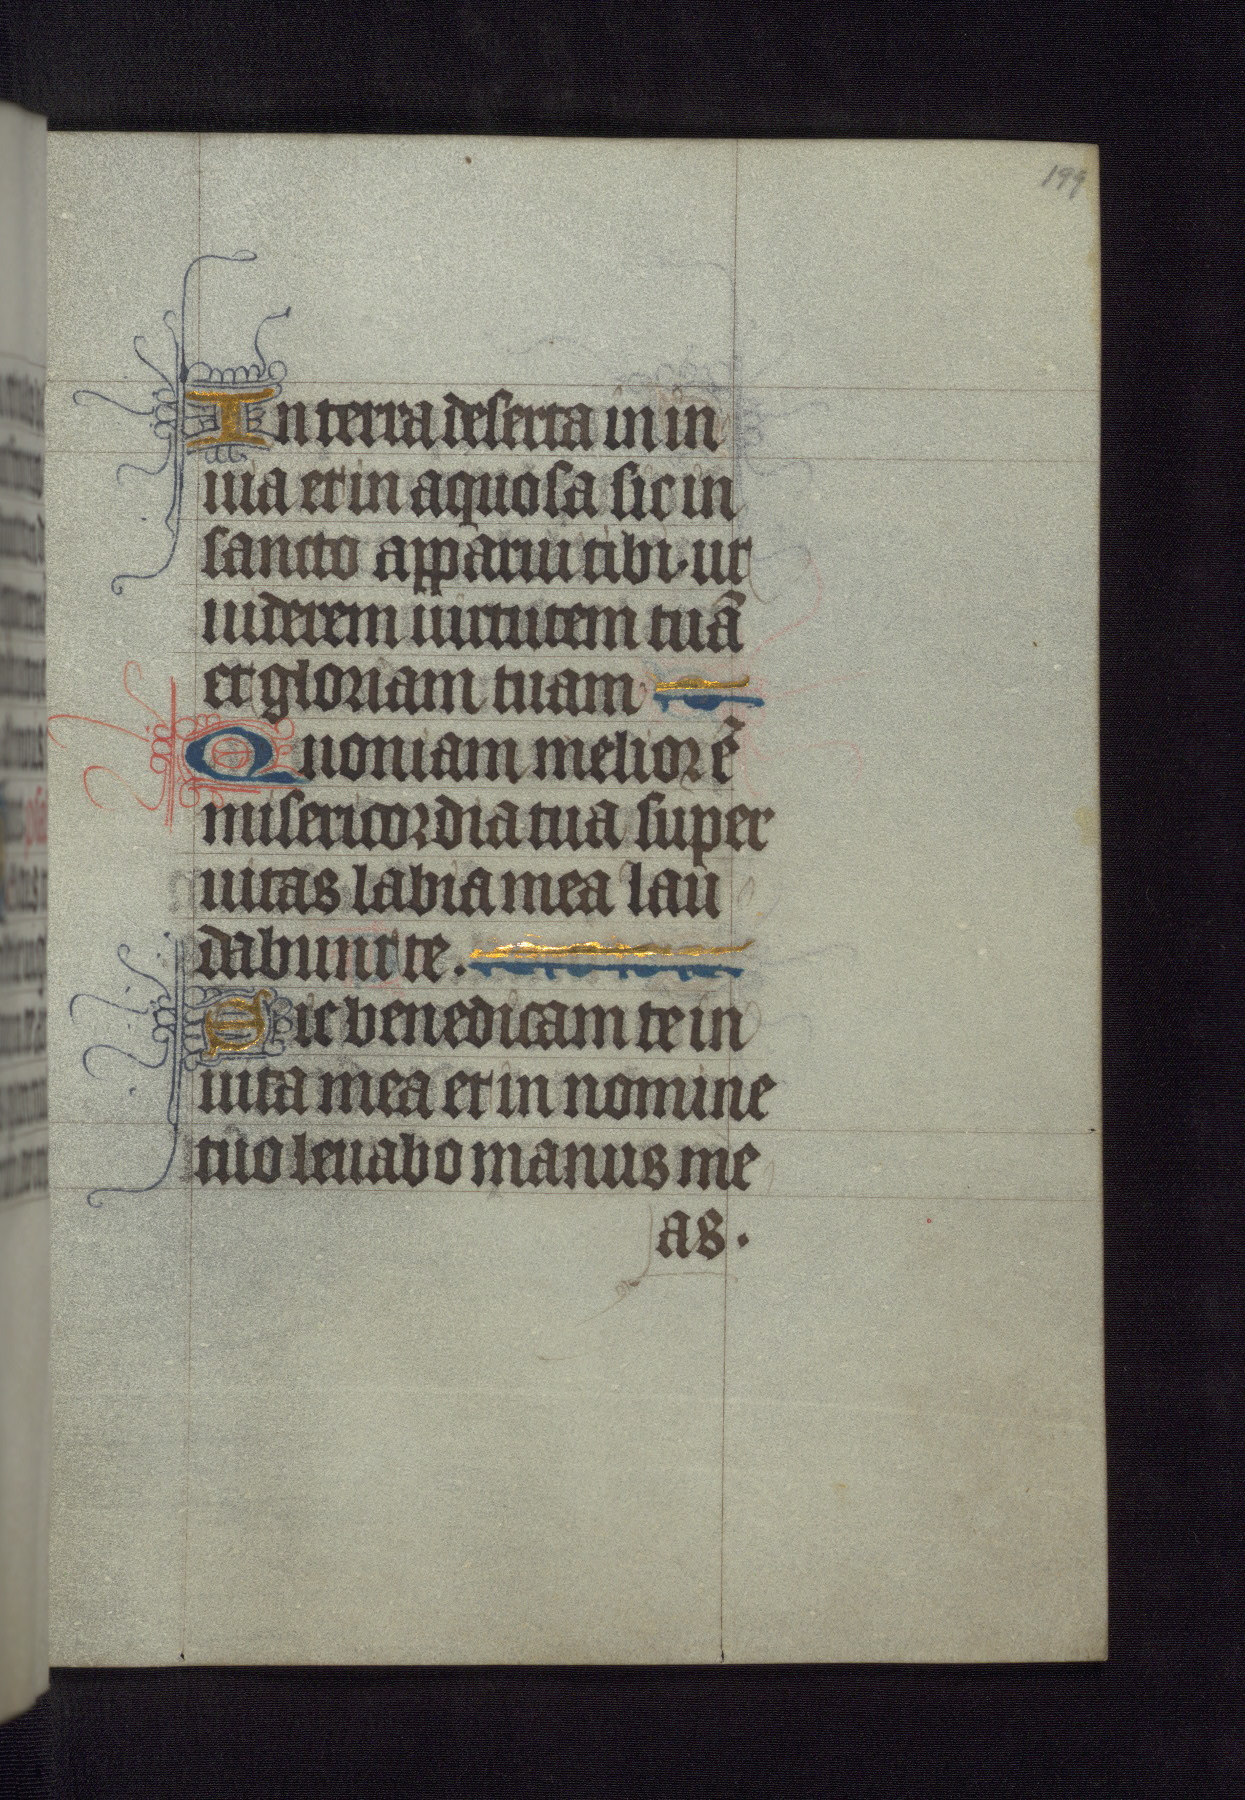 199
In terra deserta in in
uia et in aquosa sic in
sancto apparui tibi. ut
uiderem uirtutem tuā
et gloriam tuam
Quoniam melior ē
misericordia tua super
uitas labia mea lau
dabunt te.
Sic benedicam te in
uita mea et in nomine
tuo leuabo manus me
as.